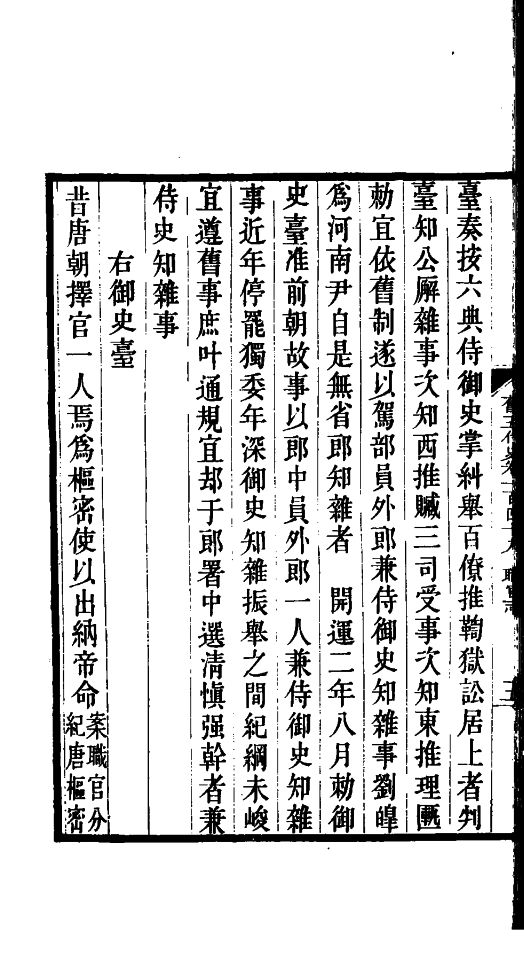 臺奏按六典侍御史掌糾舉百僚推鞫獄訟居上者判
臺知公廨雜事次知西推贓三司受事次知東推理匭
勅宜依舊制遂以駕部員外郎兼侍御史知雜事劉皡
爲河南尹自是無省郎知雜者　開運二年八月勅御
史臺准前朝故事以郎中員外郎一人兼侍御史知雜
事近年停罷獨委年深御史知雜振舉之間紀綱未峻
宜遵舊事庶叶通規宜却于郎署中選清愼强幹者兼
侍史知雜事
右御史臺
昔唐朝擇官一人焉爲樞密使以出納帝命
案職官分
紀唐樞密